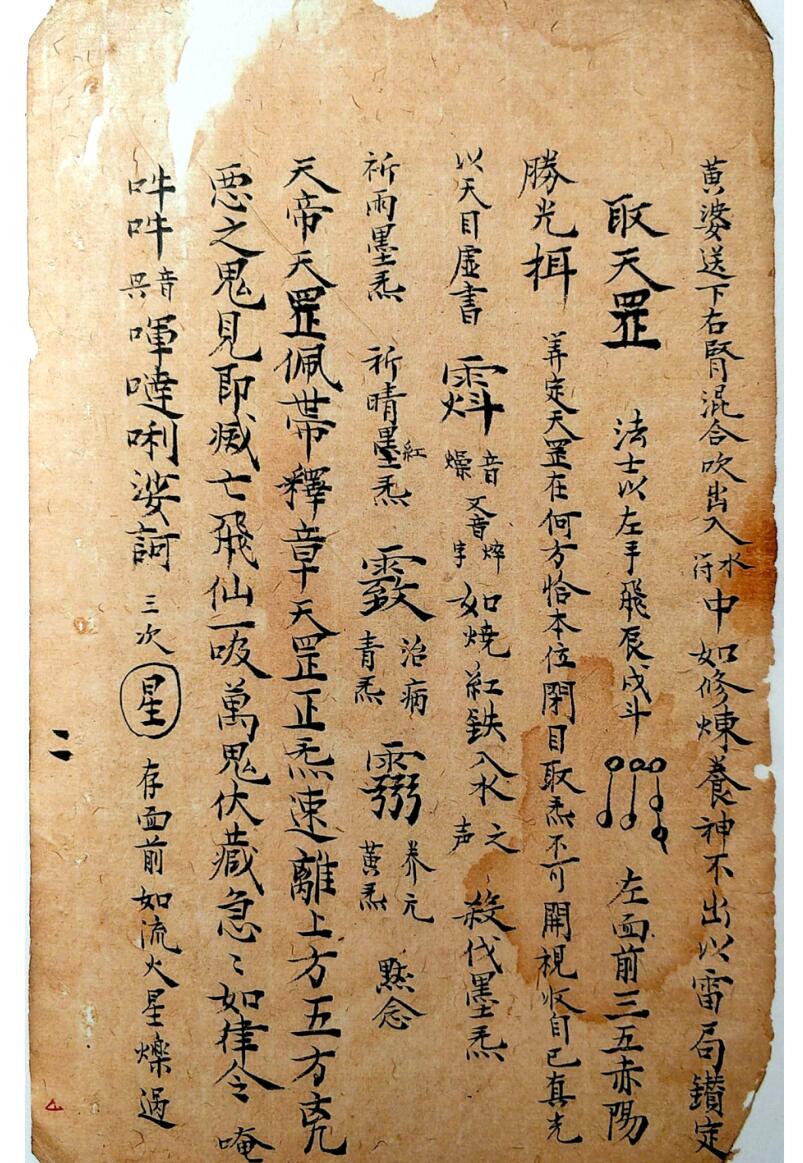 黃婆送下右腎混合吹出入水符中如修煉養神不出以雷局鑚定
取天罡　法士以左手飛辰戌斗　左面前三五赤陽
勝光　算定天罡在何方恰本位閉目取炁不可開視收自己真光
以天目虛書　音燥又音焠字如燒紅鉄入水之声　殺伐墨炁
祈雨墨炁　祈晴墨紅炁　治病青炁　养元黃炁　默念
天帝天罡佩帶釋章天罡正炁速離上方五方克
惡之鬼見即滅亡飛仙一吸萬鬼伏藏急〻如律令唵
吽吽音吳㖶噠唎娑訶三次　星　存面前如流火星爍過
二